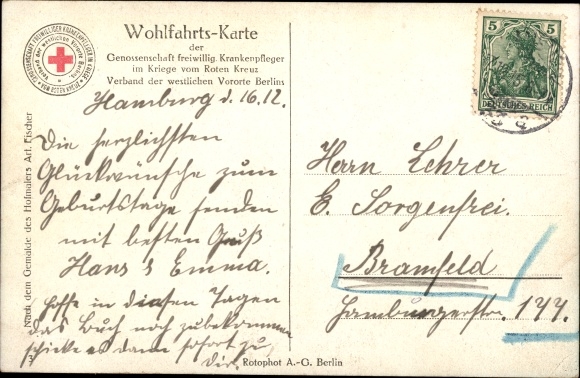 Wohlfahrts-Karte
der
Genossenschaft freiwillig. Krankenpfleger
im Kriege vom Roten Kreuz
Verband der westlichen Vororte Berlins
Hamburg d. 16.12.
Die herzlichsten
Glückwünsche zum
Geburtstage senden
mit besten Gruß
Hans & Emma.
hoffe in diesen Tagen
das Buch noch zubekommen
schicke es dann sofort zu
Dir.
Nach dem Gemälde des Hofmalers Art. Fischer
3
Rotophot A.-G. Berlin
5 5
DEUTSCHES REICH
Herrn Lehrer
E. Sorgenfrei.
Bramfeld
Hamburgerstr. 177.